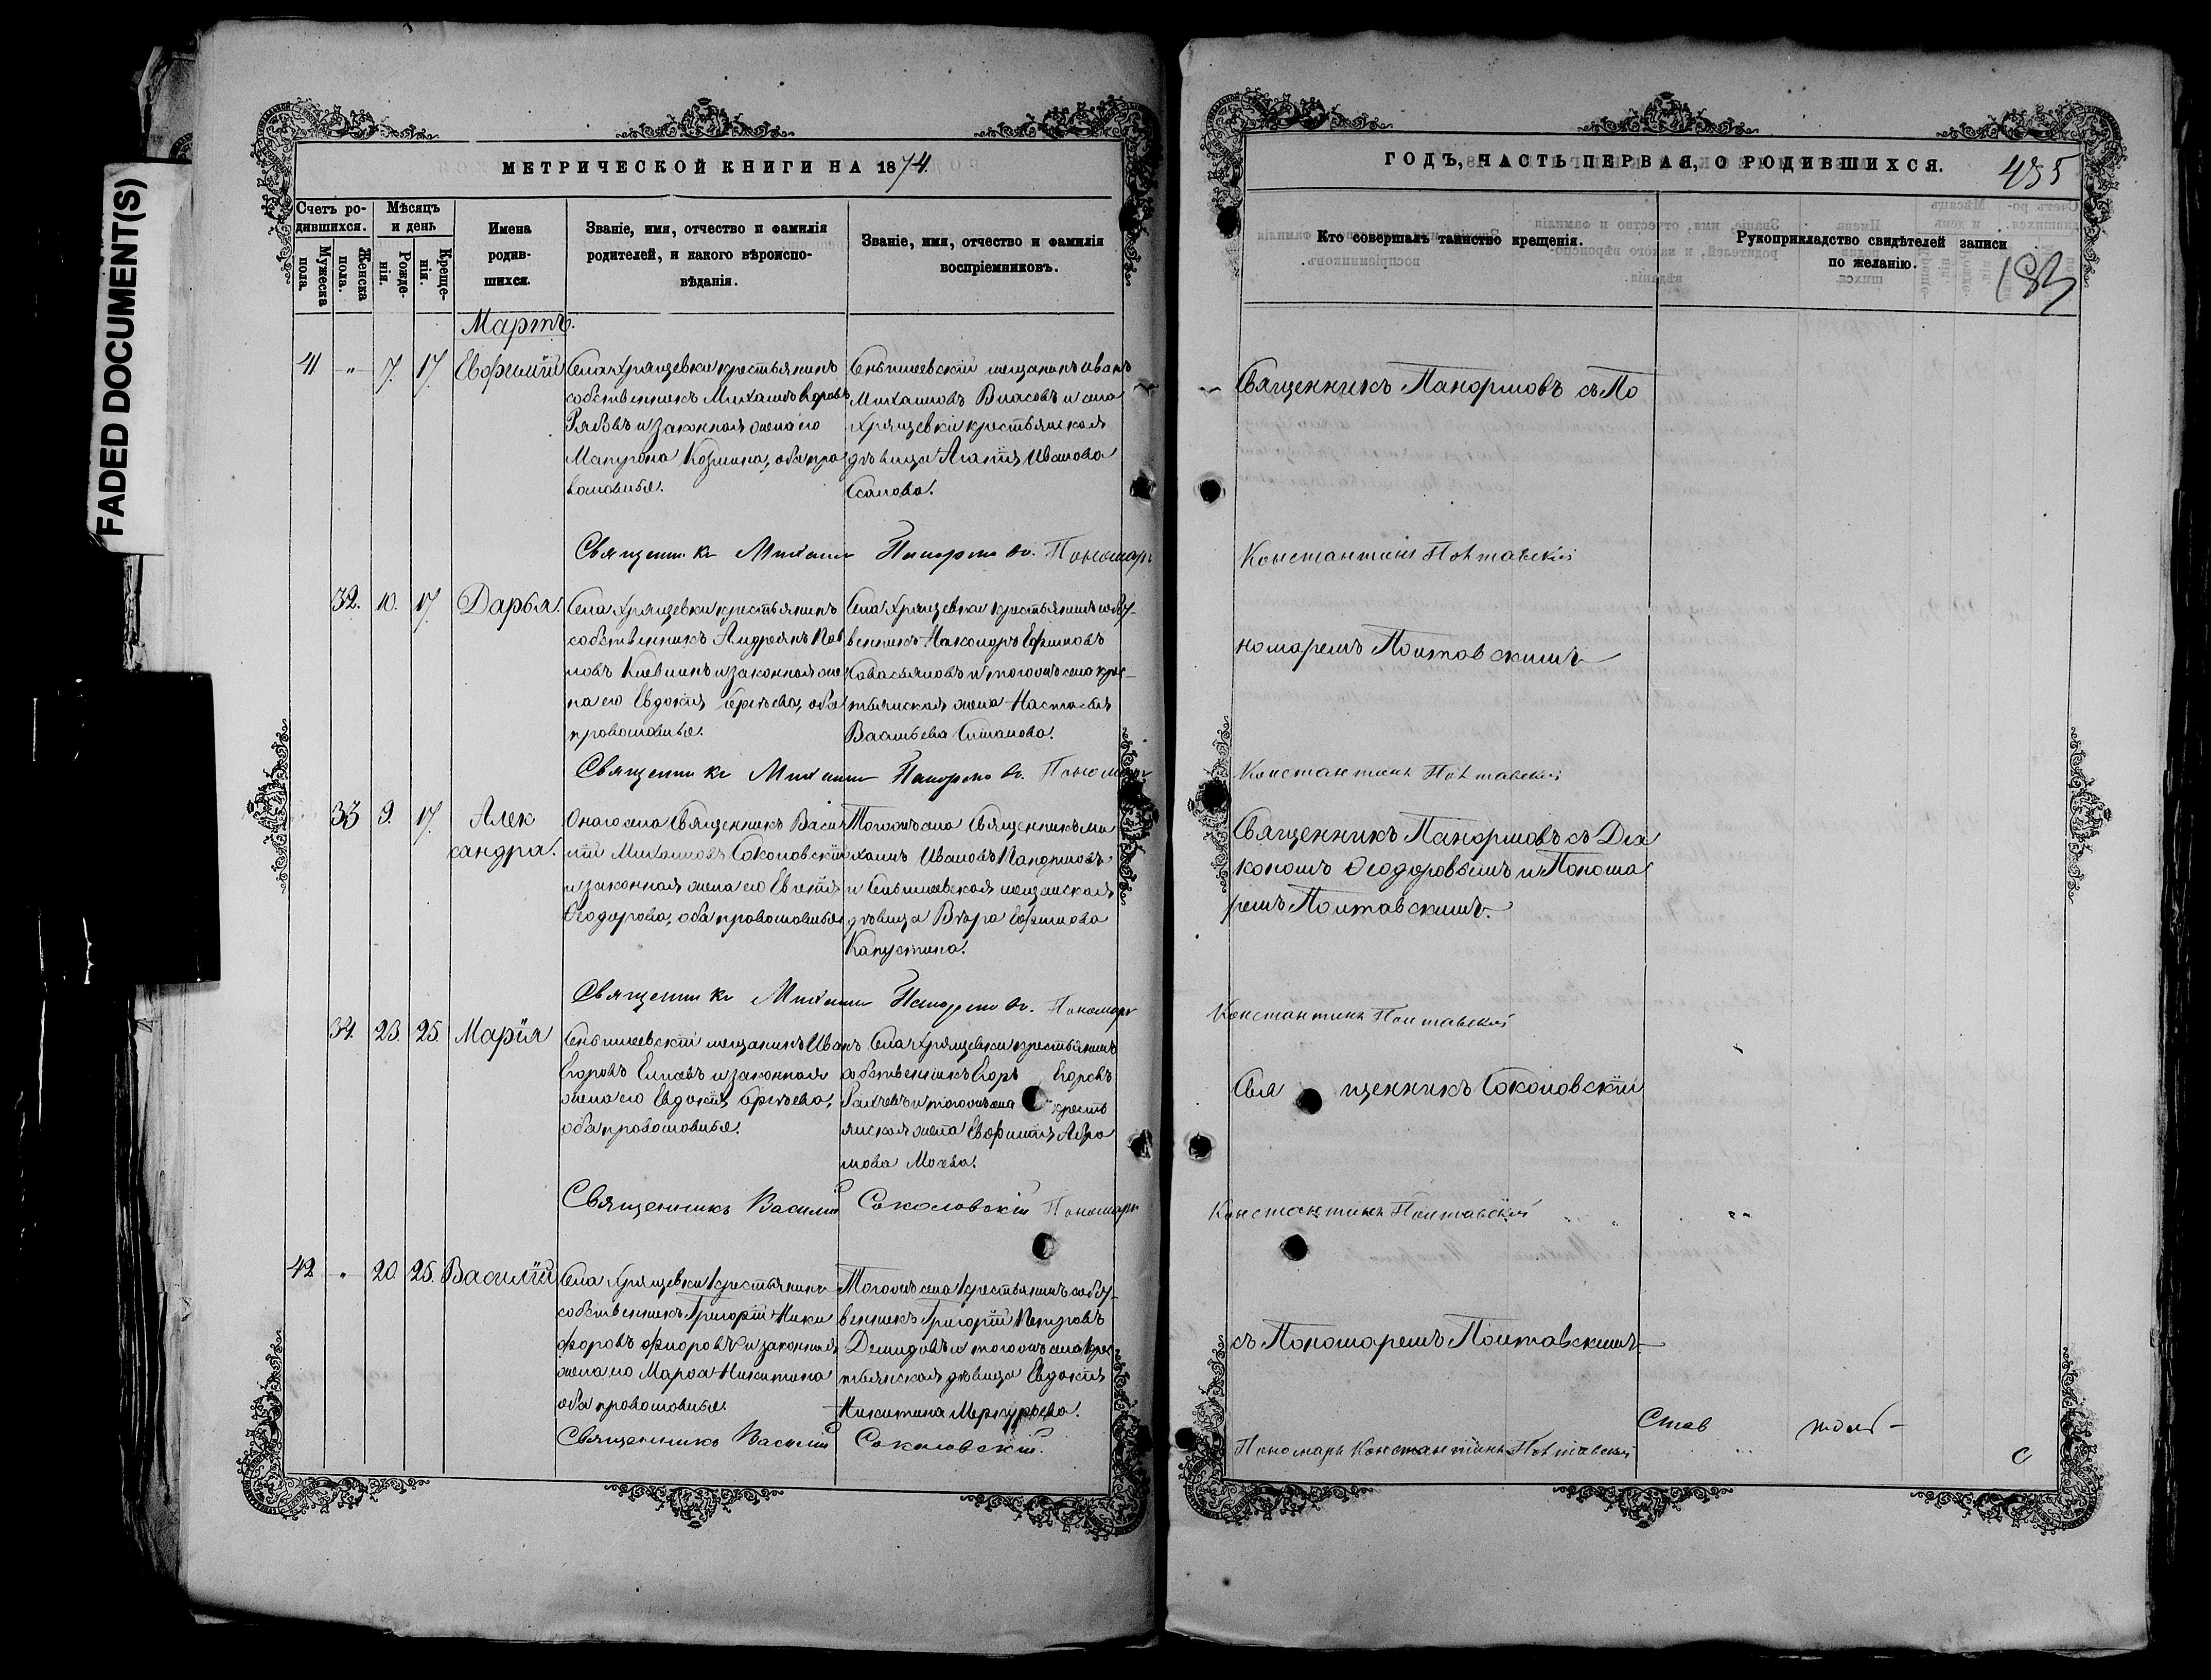 FADED DOCUMENT(S)
МЕТРИЧЕСКОЙ КНИГИ НА 1874.
Счетъ ро-
дившихся.
Мужеска
пола.
Женска
пола.
Мѣсяцъ
и день
Рожде-
нія.
Креще-
нія.
Имена
родив-
шихся.
Званіе, имя, отчество и фамилія
родителей, и какого вѣроиспо-
вѣданія.
Званіе, имя, отчество и фамилія
воспріемниковъ.
Мартъ.
41 " 7. 17. Евфимій
Села Хрящевки крестьянинъ
собственникъ Михаилъ Егоровъ
Рябовъ и законная жена его
Козмина, оба пра
вославные.
Сенгилеевскій мещанинъ Иванъ
Михаиловъ Власовъ и села
Хрящевки крестьянская
дѣвица Агапія Иванова
Священникъ Михаилъ Панормовъ. Пономарь
32. 10. 17. Дарья.
Села Хрящевки крестьянинъ
собственникъ Андреянъ
и законная же
на его Евдокія Сергѣева, оба
православные.
Села Хрящевки крестьянинъ собст-
венникъ Никаноръ Ефимовъ
и тогожъ села крес-
тьянская жена Настасья
Васильева Степанова.
Священникъ Михаилъ Панормовъ. Пономарь
33 9. 17. Алек
сандра.
Онаго села Священникъ Васи
лій Михаиловъ Соколовскій
и законная жена его Евгенія
Ѳеодорова, оба православные
Тогожъ села Священникъ Ми
хаилъ Ивановъ Панормовъ
и Сенгилеевская мещанская
дѣвица Вѣра Ефимова
Капустина.
Священникъ Михаилъ Панормовъ. Пономарь
34. 23. 25. Марія
Сенгилеевскій мещанинъ Иванъ
Егоровъ и законная
жена его Евдокія Сергѣева,
оба православные.
Села Хрящевки крестьянинъ
собственникъ Егоръ Егоровъ
и тогожъ села кресть
янская жена Евфимія Абра
мова
Священникъ Василій Соколовскій Пономарь
42 " 20. 25. Василій
Села Хрящевки крестьянинъ
собственникъ Григорій Ники
форовъ и законная
жена его Марѳа Никитина
оба православные.
Тогожъ села крестьянинъ собст-
венникъ Григорій Петровъ
Демидовъ и тогожъ села крес
тьянская дѣвица Евдокія
Никитина Меркурьева.
Священникъ Василій Соколовскій.
ГОДЪ, ЧАСТЬ ПЕРВАЯ, О РОДИВШИХСЯ.
435
Кто совершалъ таинство крещенія.
Рукоприкладство свидѣтелей записи
по желанію.
Священникъ Панормовъ съ По
Константинъ Полтавскій
номаремъ Полтавскимъ
Константинъ Полтавскій
Священникъ Панормовъ съ Діа
кономъ Ѳеодоровымъ и Понома
ремъ Полтавскимъ.
Константинъ Полтавскій
Священникъ Соколовскій
Константинъ Полтавскій
съ Пономаремъ Полтавскимъ
Пономарь Константинъ Полтавскій